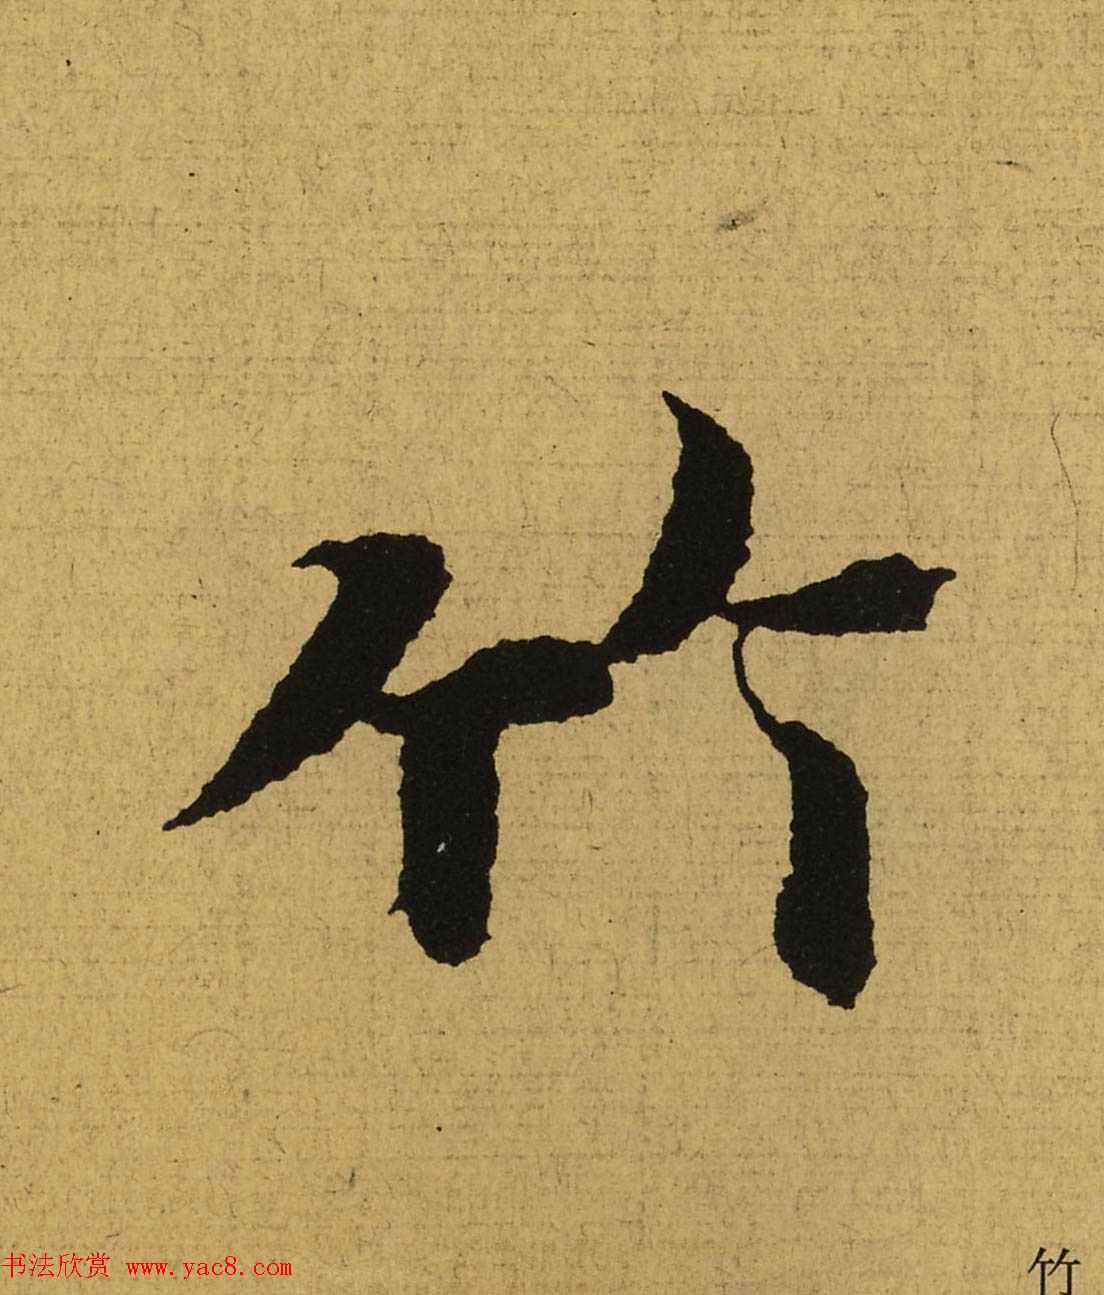 竹
书法欣赏 www.yac8.com
竹